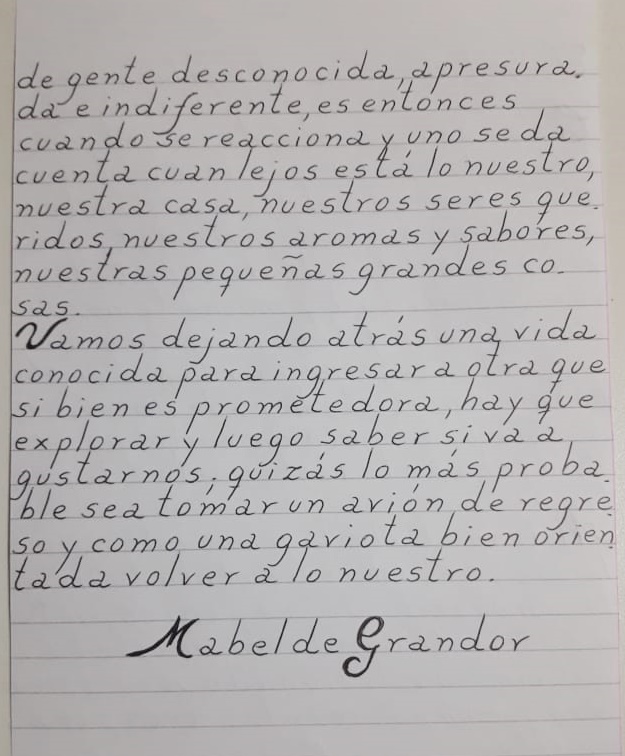 de gente desconocida, apresura.
da e indiferente, es entonces
cuando se reacciona y uno se da
cuenta cuan lejos está lo nuestro,
nuestra casa, nuestros seres que.
ridos, nuestros aromas y sabores,
nuestras pequeñas grandes co.
sas.
Vamos dejando atrás una vida
conocida para ingresar a otra que
si bien es prometedora, hay que
explorar y luego saber si va a
gustarnos; quizás lo más proba.
ble sea tomar un avión de regre.
so y como una gaviota bien orien
tada volver a lo nuestro.
Mabel de Grandor